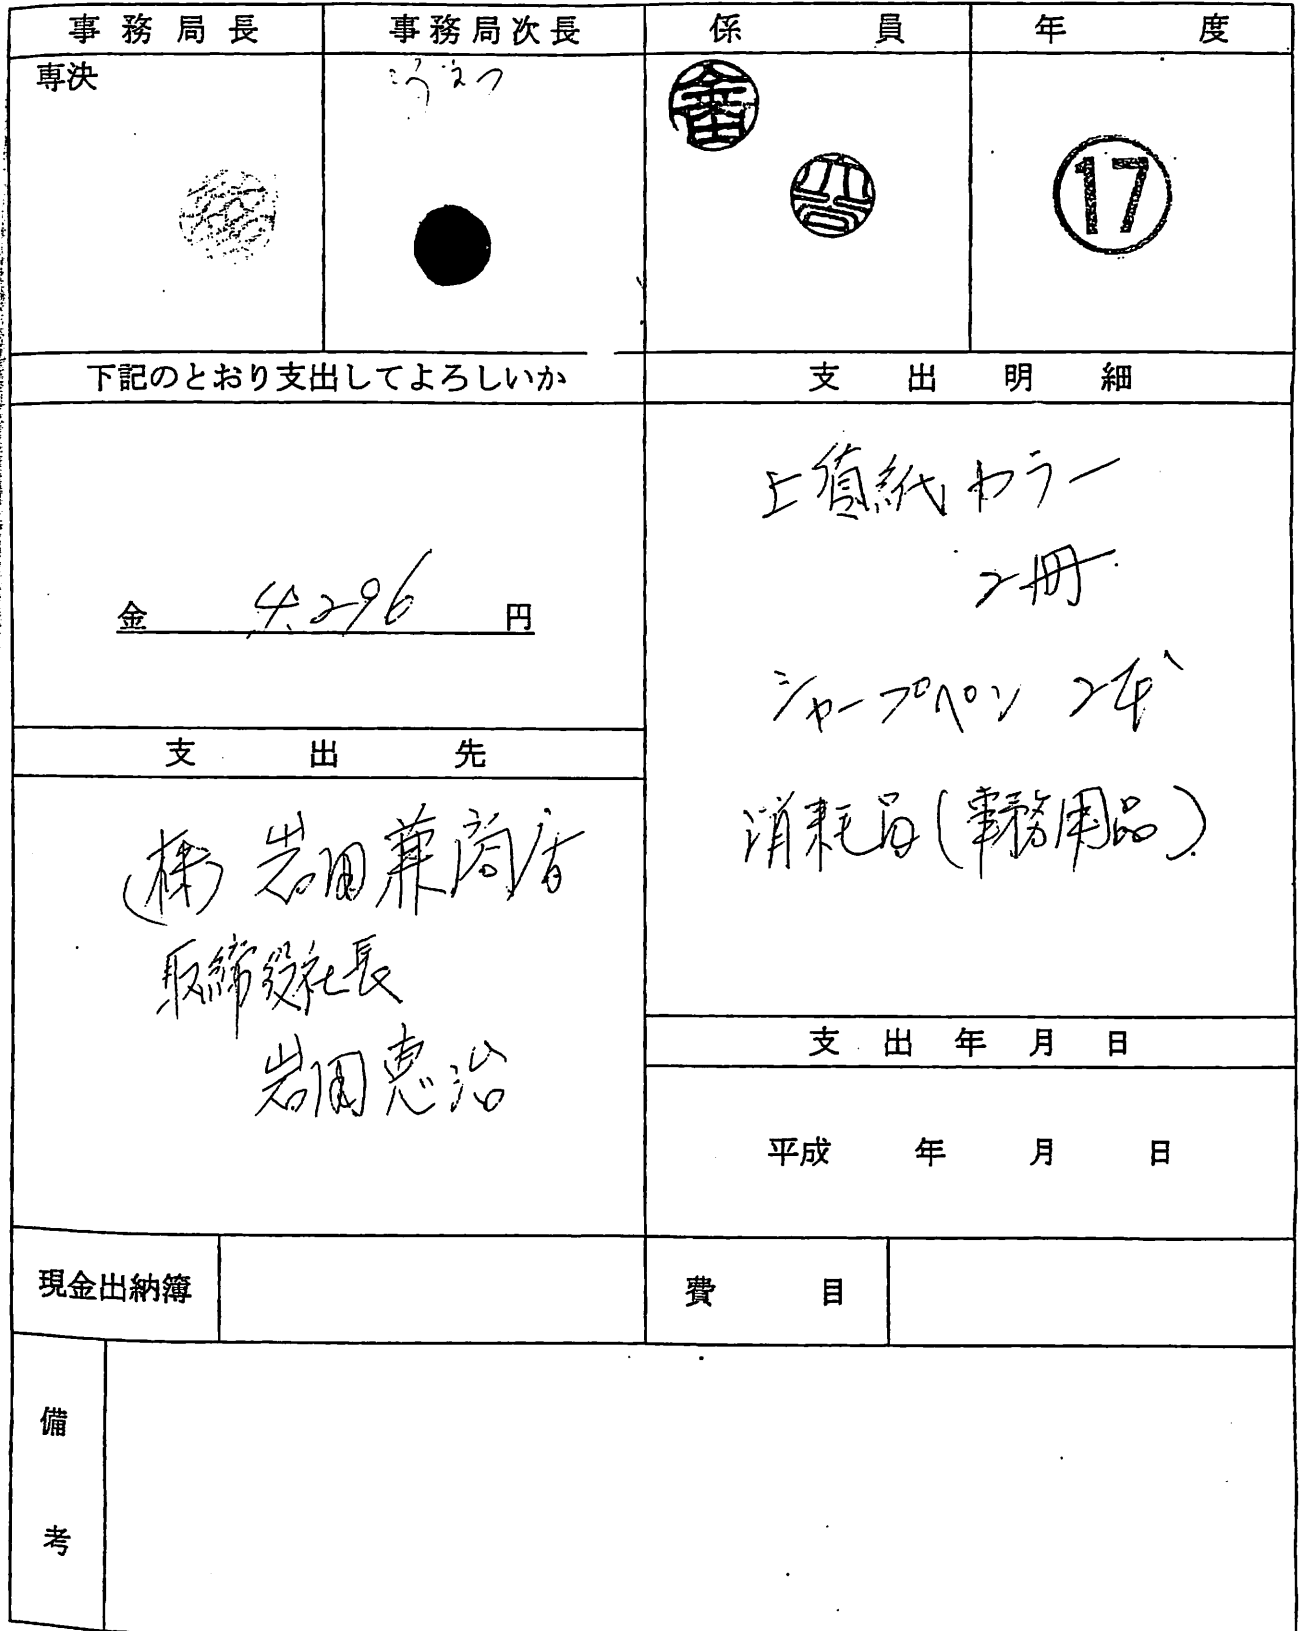 事務局長 事務局次長 係員 年度
専決
17
下記のとおり支出してよろしいか
金 4,296 円
支出先
(株) 岩田兼商店
取締役社長
岩田恵治
支出明細
上質紙カラー
2冊
シャープペン 2本
消耗品(事務用品)
支出年月日
平成 年 月 日
現金出納簿
費目
備考